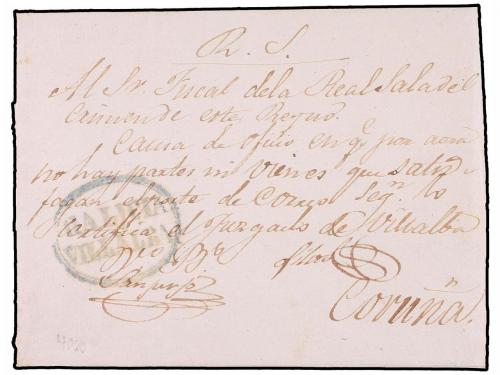 R. S.
Al Sr. Fiscal dela Real Sala del
Crimen de este Regno.
Causa de oficio en q.e por aora
no hay partes ni vienes que
pagan el porte de Correo Seg.n lo
Certifica el Juzgado de Villalba
GALICIA
VILLALBA
Coruña.